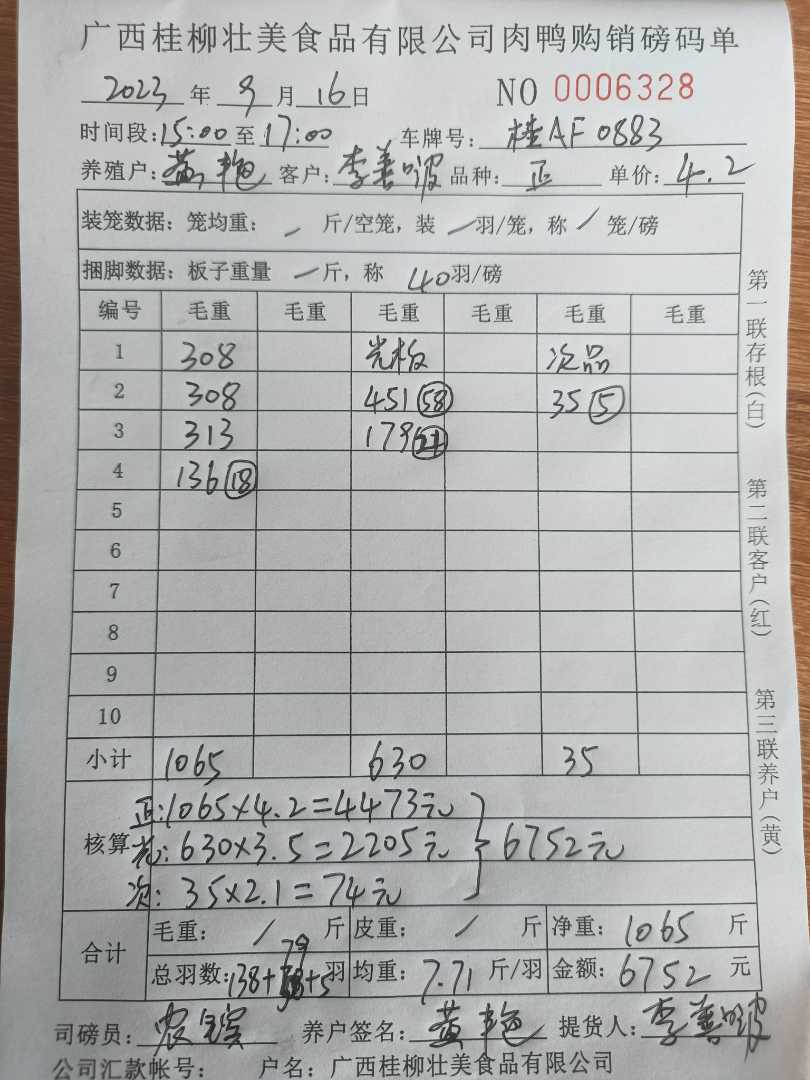 广西桂柳壮美食品有限公司肉鸭购销磅码单
2023 年 9 月 16 日 NO 0006328
时间段:15:00 至 17:00 车牌号: 桂AF0883
养殖户: 黄艳 客户: 李善 品种: 正 单价: 4.2
装笼数据: 笼均重: / 斤/空笼, 装 / 羽/笼, 称 / 笼/磅
捆脚数据: 板子重量 / 斤, 称 40 羽/磅
编号 毛重 毛重 毛重 毛重 毛重 毛重
1 308 次品
2 308 451 58 35 5
3 313 179
4 136 18
5
6
7
8
9
10
小计 1065 630 35
核算
正:1065×4.2=4473元
:630×3.5=2205元
次: 35×2.1=74元
6752元
合计
毛重: / 斤 皮重: / 斤 净重: 1065 斤
79
总羽数:138+ +5 羽 均重: 7.71 斤/羽 金额: 6752 元
司磅员: 养户签名: 黄艳 提货人: 李善
公司汇款帐号: 户名: 广西桂柳壮美食品有限公司
第一联存根(白)
第二联客户(红)
第三联养户(黄)